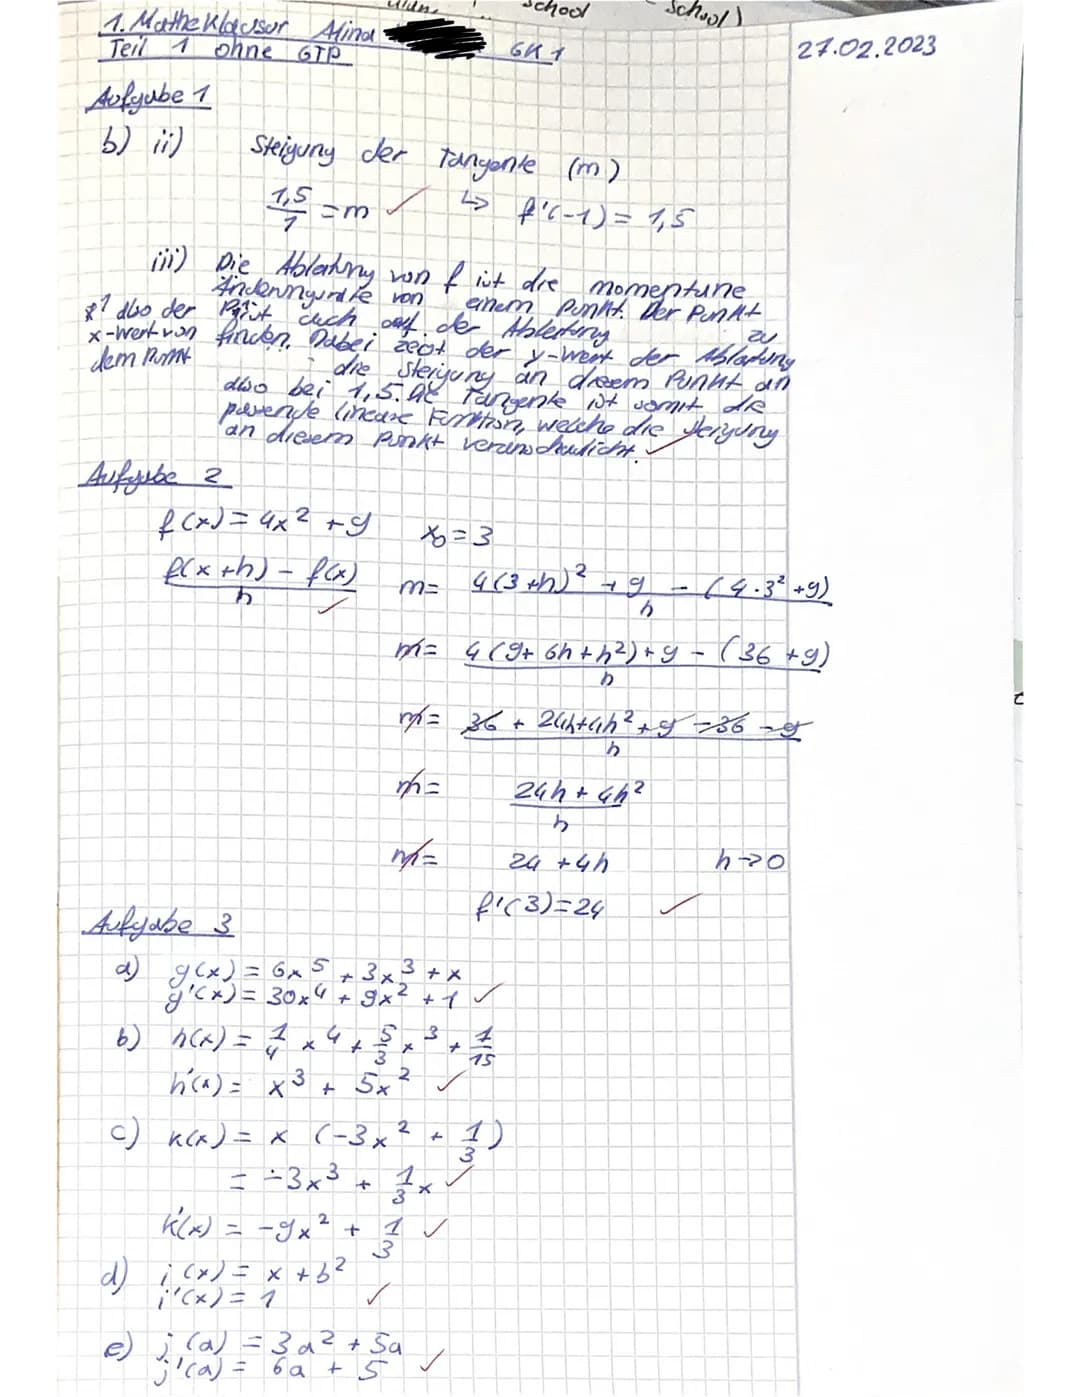 school
school)
1. Mathe Klausur Alina GK 1
27.02.2023
Teil 1 ohne GTP
Aufgabe 1
b) ii) Steigung der Tangente (m)
1,5/1 = m ✓ ↳ f'(-1) = 1,5
iii) Die Ableitung von f ist die momentane
Änderungsrate von einem Punkt. Der Punkt
*1 also der ist auch auf der Ableitung zu
x-Wert von finden. Dabei zeigt der y-Wert der Ableitung
dem Punkt die Steigung an diesem Punkt an
also bei 1,5. Die Tangente ist somit die
passende lineare Funktion, welche die Steigung
an diesem Punkt veranschaulicht. ✓
Aufgabe 2
f(x) = 4x² + 9 x₀ = 3
f(x+h) - f(x)/h ✓ m = 4(3+h)² + 9 - (4·3² + 9)/h
m = 4(9 + 6h + h²) + 9 - (36 + 9)/h
m = 36 + 24h + 4h² + 9 - 36 - 9/h
m = 24h + 4h²/h
m = 24 + 4h h→0
f'(3) = 24 ✓
Aufgabe 3
a) g(x) = 6x⁵ + 3x³ + x
g'(x) = 30x⁴ + 9x² + 1 ✓
b) h(x) = 1/4 x⁴ + 5/3 x³ + 1/15
h'(x) = x³ + 5x² ✓
c) k(x) = x (-3x² + 1/3)
= -3x³ + 1/3 x ✓
k'(x) = -9x² + 1/3 ✓
d) i(x) = x + b²
i'(x) = 1 ✓
e) j(a) = 3a² + 5a
j'(a) = 6a + 5 ✓